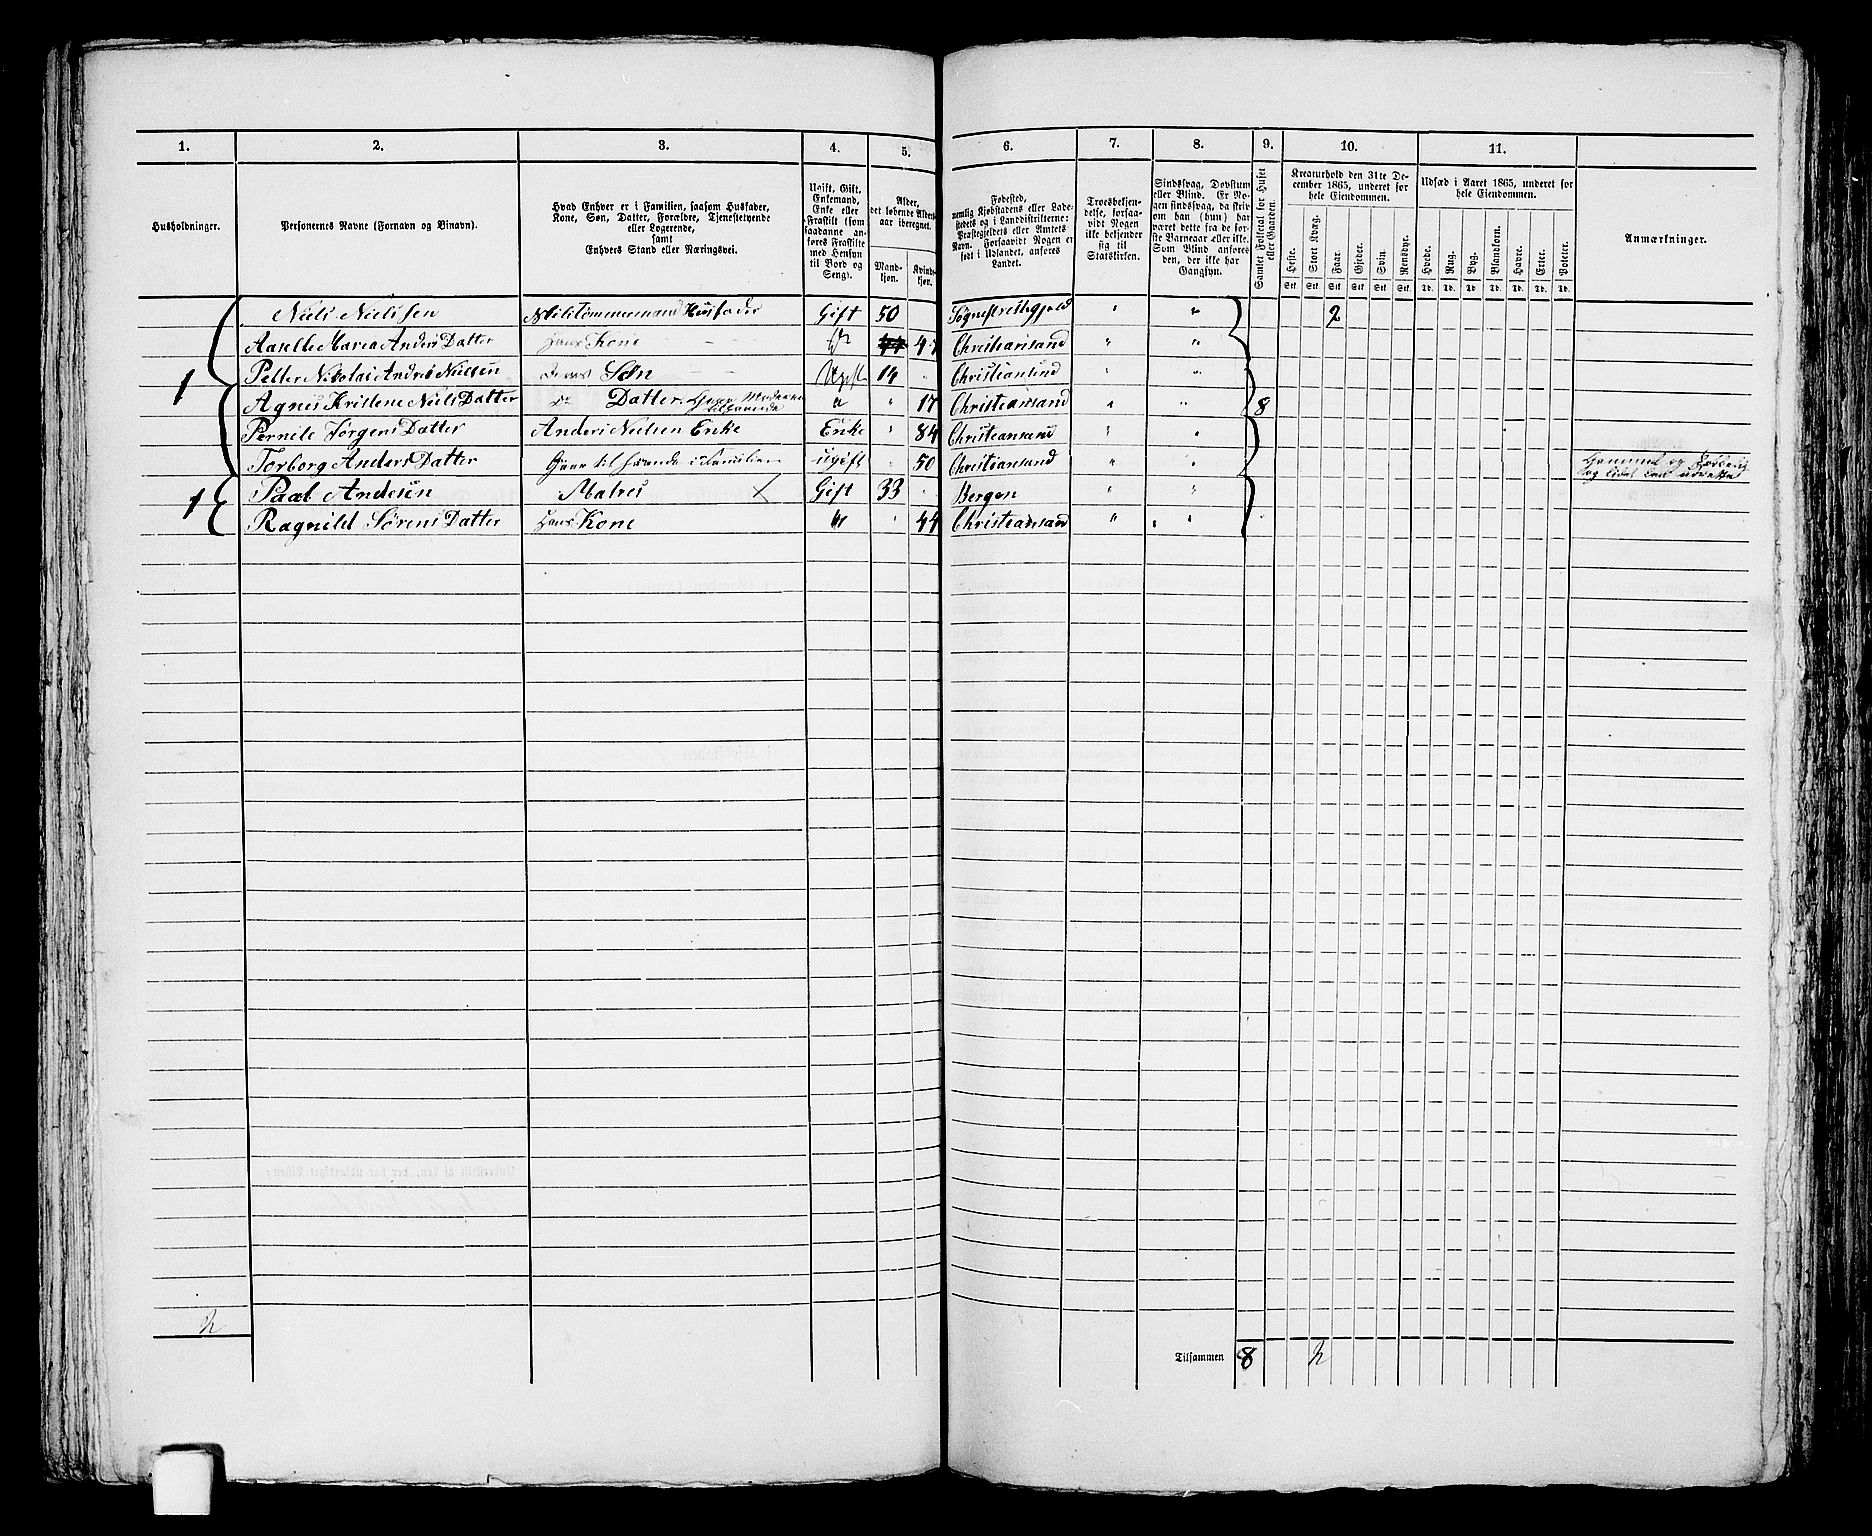 1. 2. 3. 4. 5. 6. 7. 8. 9. 10. 11.
Husholdninger.
Personernes Navne (Fornavn og Binavn).
Hvad Enhver er i Familien, saasom Husfader,
Kone, Søn, Datter, Forældre, Tjenestetyende
eller Logerende,
samt
Enhvers Stand eller Næringsvei.
Ugift, Gift,
Enkemand,
Enke eller
Fraskilt (som
saadanne an-
føres Fraskilte
med Hensyn
til Bord og
Seng).
Alder,
det løbende Alders-
aar iberegnet.
Mand-
kjøn.
Kvind-
kjøn.
Fødested,
nemlig Kjøbstadens eller Lade-
stedets og i Landdistrikterne:
Præstegjeldets eller Amtets
Navn. Forsaavidt Nogen er
født i Udlandet, anføres
Landet.
Troesbekjen-
delse, forsaa-
vidt Nogen
ikke bekjender
sig til
Statskirken.
Sindssvag, Døvstum
eller Blind. Er No-
gen sindssvag, skriv
om han (hun) har
været dette fra de før-
ste Barneaar eller ikke.
Som Blind anføres
den, der ikke har
Gangsyn.
Samlet Folketal for Huset
eller Gaarden.
Kreaturhold den 31te De-
cember 1865, underet for
hele Eiendommen.
Heste. Stort Kvæg. Faar. Gjeder. Svin. Rensdyr.
Stk. Stk. Stk. Stk. Stk. Stk.
Udsæd i Aaret 1865, underet for
hele Eiendommen.
Hvede. Rug. Byg. Blandkorn. Havre. Erter. Poteter.
Td. Td. Td. Td. Td. Td. Td.
Anmærkninger.
Niels Nielssen Husfader Gift 50 " " 2
Aaselle Maria Anders Datter Hans Kone Do 47 Christiansand " "
1 Petter Nikolai Andres Nielsen Deres Søn Ugift 14 Christiansund " "
Agnes Kristene Niels Datter Do Datter " 17 Christiansand " " 8
Pernile Jørgens Datter Anders Nielsen Enke Enke " 84 Christiansand " "
Torborg Anders Datter Gaar til haande i Familien ugift " 50 Christiansand " "
1 Paal Andesen Matros × Gift 33 Bergen " "
Ragnild Sørens Datter Hans Kone " 44 Christiansand " "
2
Tilsammen 8 2